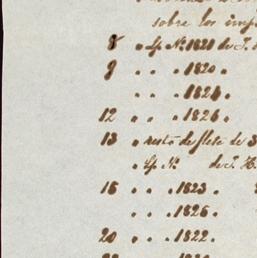 sobre los imp
8 " Lp. No. 1821 de J.
9 " " " 1820 "
" " " 1824 "
12 " " " 1826 "
13 " resto de flete de 3
" Lp. No. de J. H.
15 " " " 1823 "
" " " 1825 "
20 " " " 1822 "